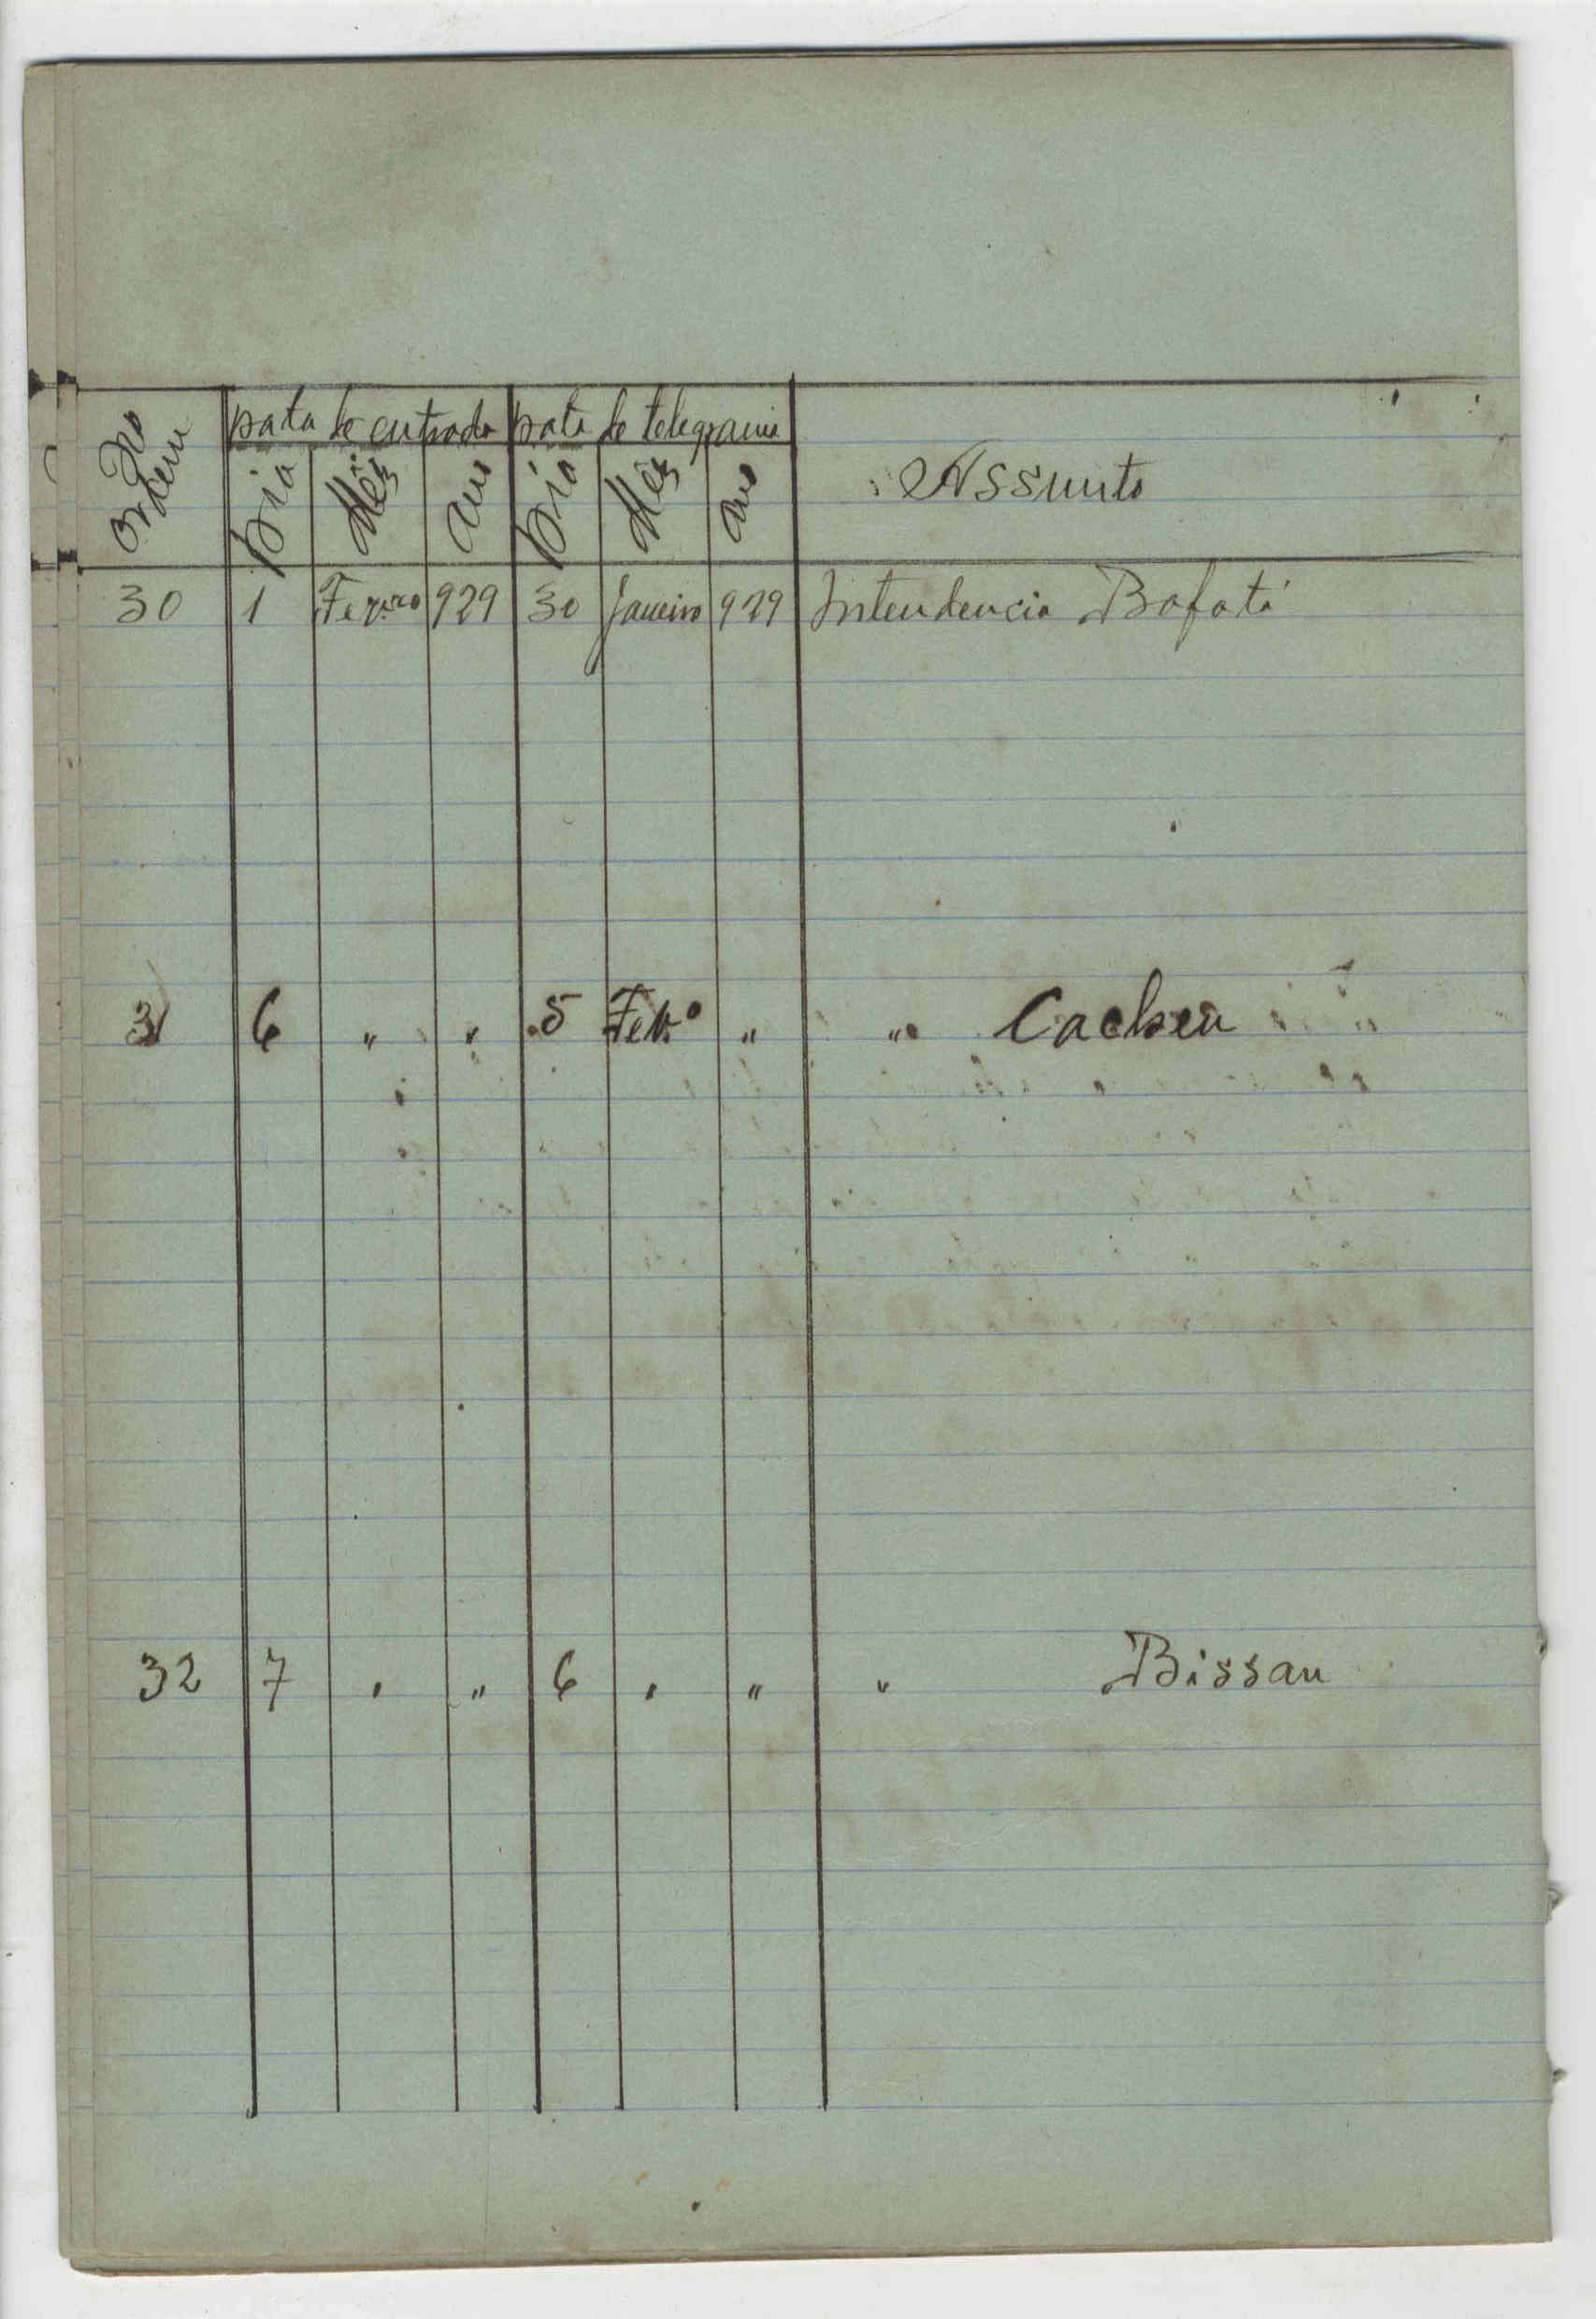 No Ordem Data de entrada Data de telegrama Assunto
Dia Mês Ano Dia Mês Ano
30 1 Fev.ro 929 30 Janeiro 929 Intendencia Bafatá
31 6 " " 5 Fev.o " " Cacheu
32 7 " " 6 " " " Bissau